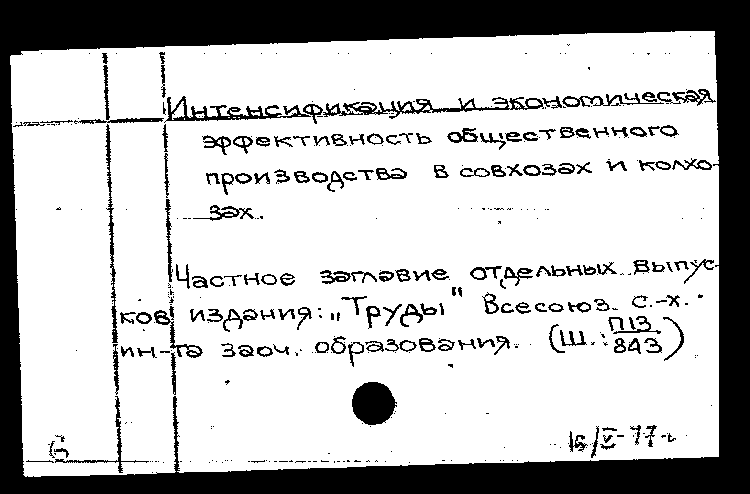 Интенсификация и экономическая
эффективность общественного
производства в совхозах и колхо-
зах.
Частное заглавие отдельных выпус-
ков издания: „Труды" Всесоюз. с.-х.
ин-та заоч. образования. (Ш.: П13/843)
6 16/V-77г